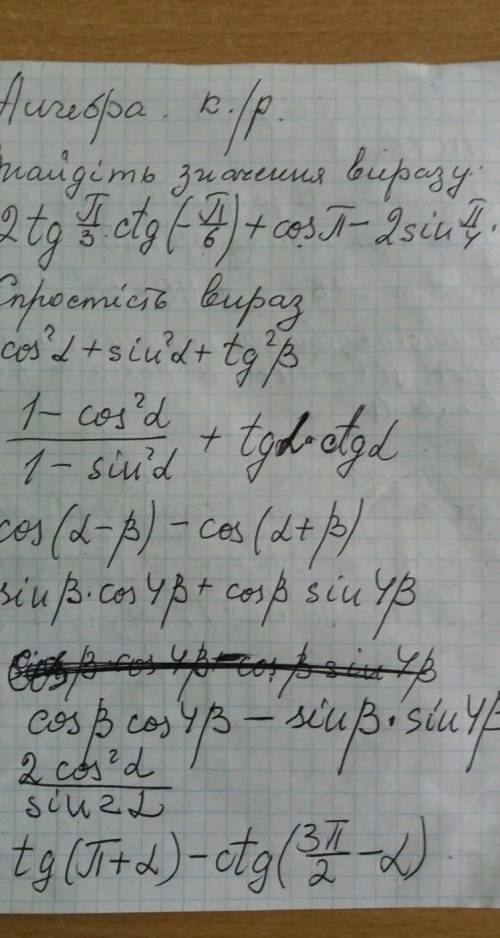 Алгебра. к./р.
Знайдіть значення виразу:
2tg π/3 · ctg(-π/6) + cosπ - 2sin π/4 ·
Спростість вираз
cos²α + sin²α + tg²β
(1 - cos²α)/(1 - sin²α) + tgα · ctgα
cos(α-β) - cos(α+β)
sinβ·cos4β + cosβ sin4β
cosβ cos4β - sinβ · sin4β
2cos²α/sin2α
tg(π+α) - ctg(3π/2 - α)